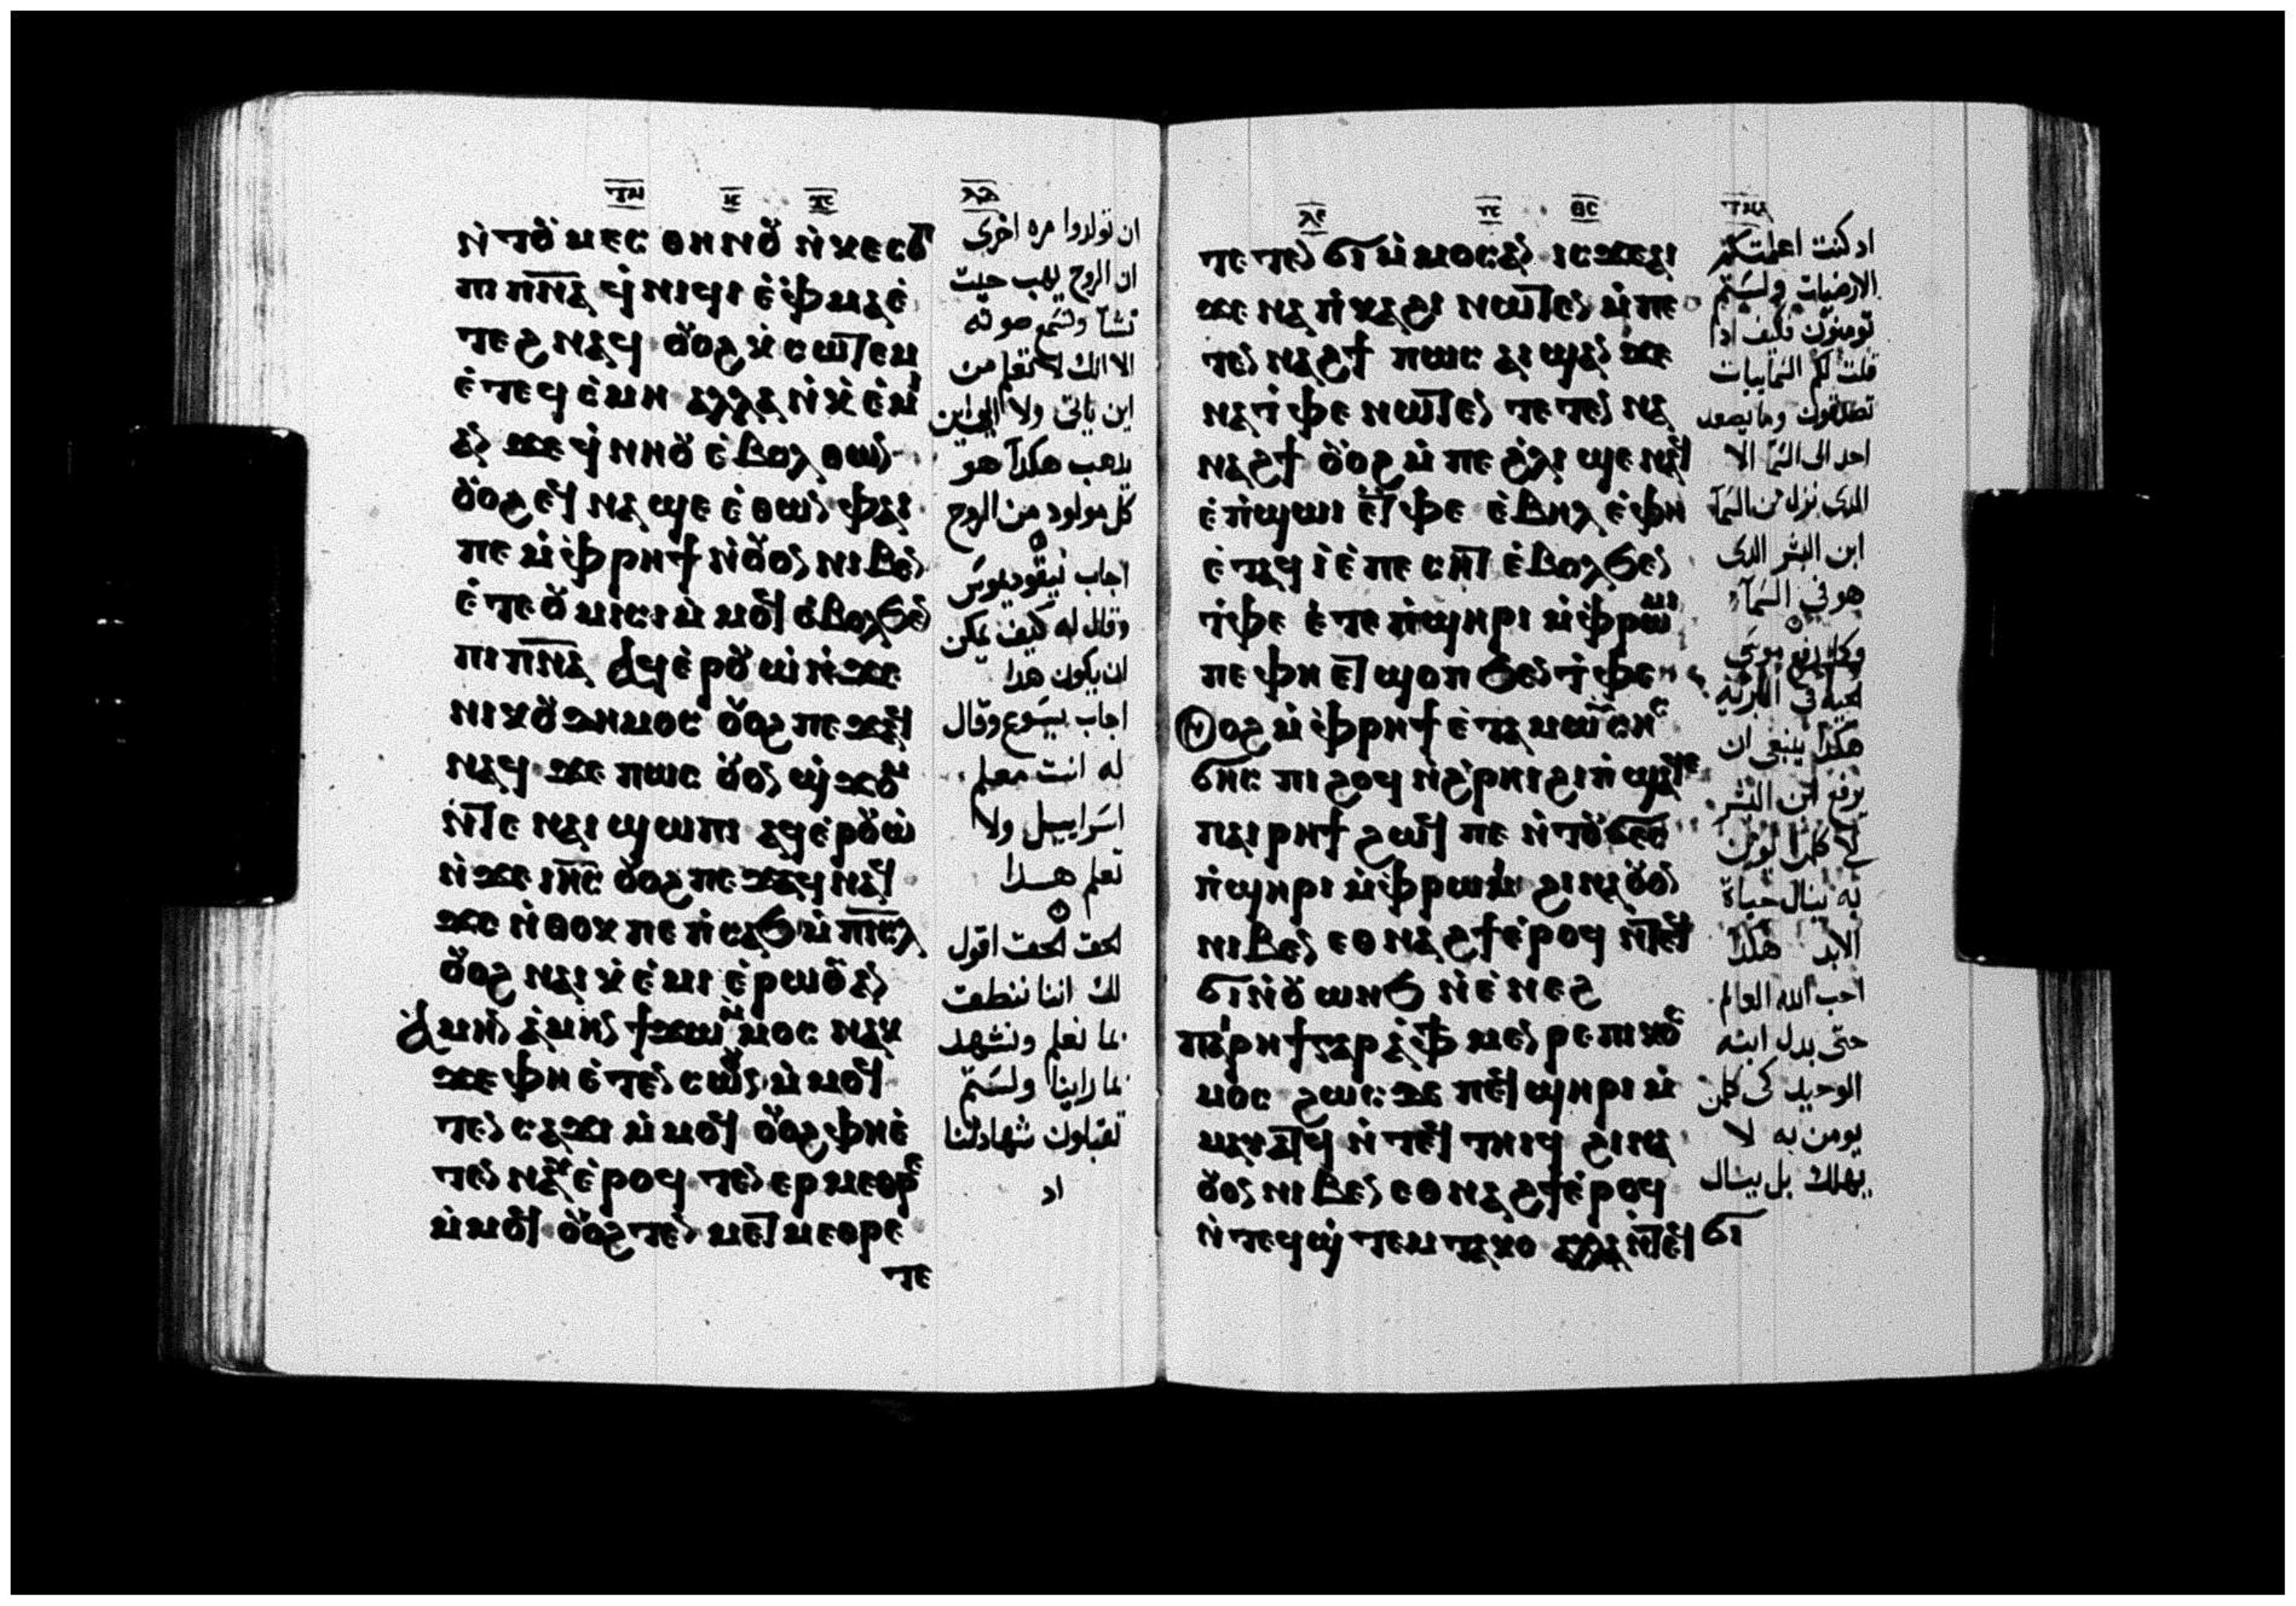 ⲧⲙ ⲓⲥ ⲭⲥ ⲗⲇ
ⲛ̀ⲧⲟⲩⲙⲉⲥ ⲑⲏⲛⲟⲩ ⲛ̀ⲕⲉⲥⲟⲡ
ⲡⲓⲡⲛ̅ⲁ̅ ϥ̀ⲛⲓϥⲓ ⲉ̀ⲫ̀ⲙⲁⲉ̀
ⲧⲉϩⲛⲁϥ ⲟⲩⲟϩ ⲕ̀ⲥⲱⲧⲉⲙ
ⲉ̀ⲧⲉϥⲥ̀ⲙⲏ ⲁⲗⲗⲁ ⲛ̀ⲕ̀ⲉ̀ⲙⲓ
ⲁⲛ ϫⲉ ϥ̀ⲛⲏⲟⲩ ⲉ̀ⲃⲟⲗ ⲑⲱⲛ
ⲟⲩⲟϩ ⲉϥⲛⲁϣⲉ ⲉ̀ⲑⲱⲛ ⲫⲁⲓ
ⲡⲉ ⲙ̀ⲫ̀ⲣⲏϯ ⲛ̀ⲟⲩⲟⲛ ⲛⲓⲃⲉⲛ
ⲉ̀ⲧⲉⲟⲩⲙⲓⲥⲓ ⲙ̀ⲙⲟϥ ⲉ̀ⲃⲟⲗϧⲉⲛ
ⲡⲓⲡⲛ̅ⲁ̅ ⲁϥⲉ̀ⲣⲟⲩⲱ̀ ⲛ̀ϫⲉ
ⲛⲓⲕⲟⲩⲇⲏⲙⲟⲥ ⲟⲩⲟϩ ⲡⲉϫⲁϥ
ⲛⲁϥ ϫⲉ ⲡⲱⲥ ⲟⲩⲟⲛ ϣ̀ϫⲟⲙ
ⲛ̀ⲧⲉ ⲛⲁⲓ ϣⲱⲡⲓ ⲁϥⲉ̀ⲣⲟⲩⲱ̀
ⲛ̀ϫⲉ ⲓⲏ̅ⲥ̅ ⲟⲩⲟϩ ⲡⲉϫⲁϥ ⲛⲁϥ
ϫⲉ ⲛ̀ⲑⲟⲕ ⲡⲉ ⲡ̀ⲥⲁϧ ⲙ̀ⲡⲓⲥ̅ⲗ̅
ⲟⲩⲟϩ ⲛⲁⲓ ⲕ̀ⲉ̀ⲙⲓ ⲉ̀ⲣⲱⲟⲩ ⲁⲛ
ⲁⲙⲏⲛ ⲁ̀ⲙⲏⲛ ϯϫⲱ ⲙ̀ⲙⲟⲥ ⲛⲁⲕ
ϫⲉ ⲫⲏ ⲉ̀ⲧⲉⲛⲥⲱⲟⲩⲛ ⲙ̀ⲙⲟϥ
ⲧⲉⲛⲥⲁϫⲓ ⲙ̀ⲙⲟϥ ⲟⲩⲟϩ ⲫⲏⲉ̀
ⲧⲉⲛⲛⲁⲩ ⲉ̀ⲣⲟϥ ⲧⲉⲛⲉⲣⲙⲉⲑⲣⲉ
ⲙ̀ⲙⲟϥ ⲟⲩⲟϩ ⲧⲉⲛⲙⲉⲧⲙⲉⲑⲣⲉ
ⲧⲉ
ان تولدوا مره اخرى
ان الروح يهب حيت
تشآ وتسمع صوته
الا انك لا تعلم من
اين ياتى ولا الى اين
يدهب هكدآ هو
كل مولود من الروح
اجاب نيقوديموس
وقال له كيف يمكن
ان يكون هدا
اجاب يسوع وقال
له انت معلم
اسراييل ولا
تعلم هدا
الحق الحق اقول
لك اننا ننطق
بما نعلم ونشهد
بما راينا ولستم
تقبلون شهادتنا
اد
ⲗⲉ ⲧⲥ ⲑⲥ ⲧⲙ
ⲧⲉⲧⲉⲛϭⲓ ⲙ̀ⲙⲟⲥ ⲁⲛ ⲓⲥϫⲉ ⲁⲓ
ϫⲉ ⲛⲁ ⲡ̀ⲕⲁϩⲓ ⲛⲱⲧⲉⲛ ⲙ̀ⲡⲉ
ⲧⲉⲛⲛⲁϩϯ ⲡⲱⲥ ⲁⲓϣⲁⲛϫⲉ
ⲛⲁ ⲧ̀ⲫⲉ ⲛⲱⲧⲉⲛ ⲧⲉⲧⲉⲛⲛⲁ
ⲛⲁϩϯ ⲟⲩⲟϩ ⲙ̀ⲡⲉ ϩ̀ⲗⲓ ϣⲉ ⲛⲁϥ
ⲉ̀ⲡ̀ϣⲱⲓ ⲉ̀ⲧ̀ⲫⲉ ⲉ̀ⲃⲏⲗ ⲉ̀ⲫⲏ
ⲉ̀ⲧⲁϥⲓ̀ ⲉ̀ⲡⲉⲥⲏⲧ ⲉ̀ⲃⲟⲗϧⲉⲛ
ⲧ̀ⲫⲉ ⲉ̀ⲧⲉ ⲡ̀ϣⲏⲣⲓ ⲙ̀ⲫ̀ⲣⲱⲙⲓ
ⲡⲉ ⲫⲏ ⲉⲧϣⲟⲡ ϧⲉⲛ ⲧ̀ⲫⲉ
ⲟⲩⲟϩ ⲙ̀ⲫ̀ⲣⲏϯ ⲉ̀ⲧⲁ ⲙⲱⲩ̀ⲥⲏⲥ
ϭⲉⲥ ⲡⲓϩⲟϥ ⲛ̀ϩ̀ⲣⲏⲓ ϩⲓ ⲡ̀ϣⲁϥⲉ
ⲡⲁⲓⲣⲏϯ ϩⲱϯ ⲡⲉ ⲛ̀ⲧⲟⲩϭⲉⲥ
ⲡ̀ϣⲏⲣⲓ ⲙ̀ⲫ̀ⲣⲱⲙⲓ ϩⲓⲛⲁ ⲟⲩⲟⲛ
ⲛⲓⲃⲉⲛ ⲉⲑⲛⲁϩϯ ⲉ̀ⲣⲟϥ ⲛ̀ⲧⲉϥ
ϭⲓ ⲛ̀ⲟⲩⲱⲛϧ ⲛ̀ⲉ̀ⲛⲉϩ
ⲡⲁⲓⲣⲏϯ ⲅⲁⲣ ⲁ̀ ⲫϯ ⲙⲉⲛⲣⲉ ⲡⲓⲕⲟⲥ
ⲙⲟⲥ ϩⲱⲥ ϫⲉ ⲡⲉϥϣⲏⲣⲓ ⲙ̀
ⲙⲁⲩⲁⲧϥ ⲛ̀ⲧⲉϥⲧⲏⲓϥ ϩⲓⲛⲁ
ⲟⲩⲟⲛ ⲛⲓⲃⲉⲛ ⲉⲑⲛⲁϩϯ ⲉ̀ⲣⲟϥ
ⲛ̀ⲧⲉϥϣ̀ⲧⲉⲙⲧⲁⲕⲟ ⲁⲗⲗⲁ ⲛ̀ⲧⲉϥϭⲓ
اد كنت اعلمتكم
الارضيات ولستم
تومنون فكيف ادا
قلت لكم السماييات
تصدقون وما يصعد
احد الى السما الا
الدى نزل من السمآ
ابن البشر الدى
هو في السمآ
وكما رفع موسى
الحيه في البرية
هكدا ينبغى ان
يرفع ابن البشر
لكي كلمن يومن
به ينال حياة
الابد هكدا
احب الله العالم
حتى بدل ابنه
الوحيد كى كلمن
يومن به لا
يهلك بل ينال